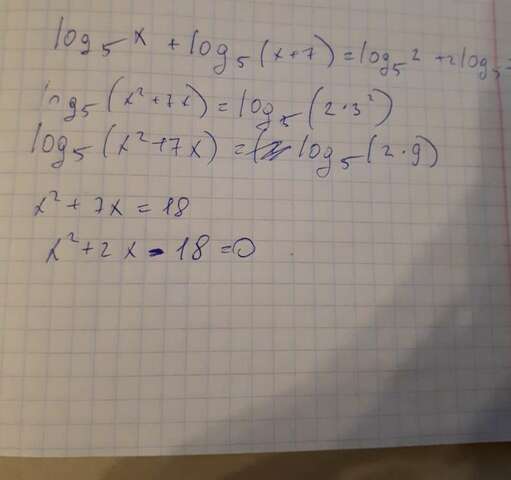 log₅ x + log₅ (x+7) = log₅ 2 + 2log₅
log₅ (x² + 7x) = log₅ (2·3²)
log₅ (x² + 7x) = log₅ (2·9)
x² + 7x = 18
x² + 2x - 18 = 0